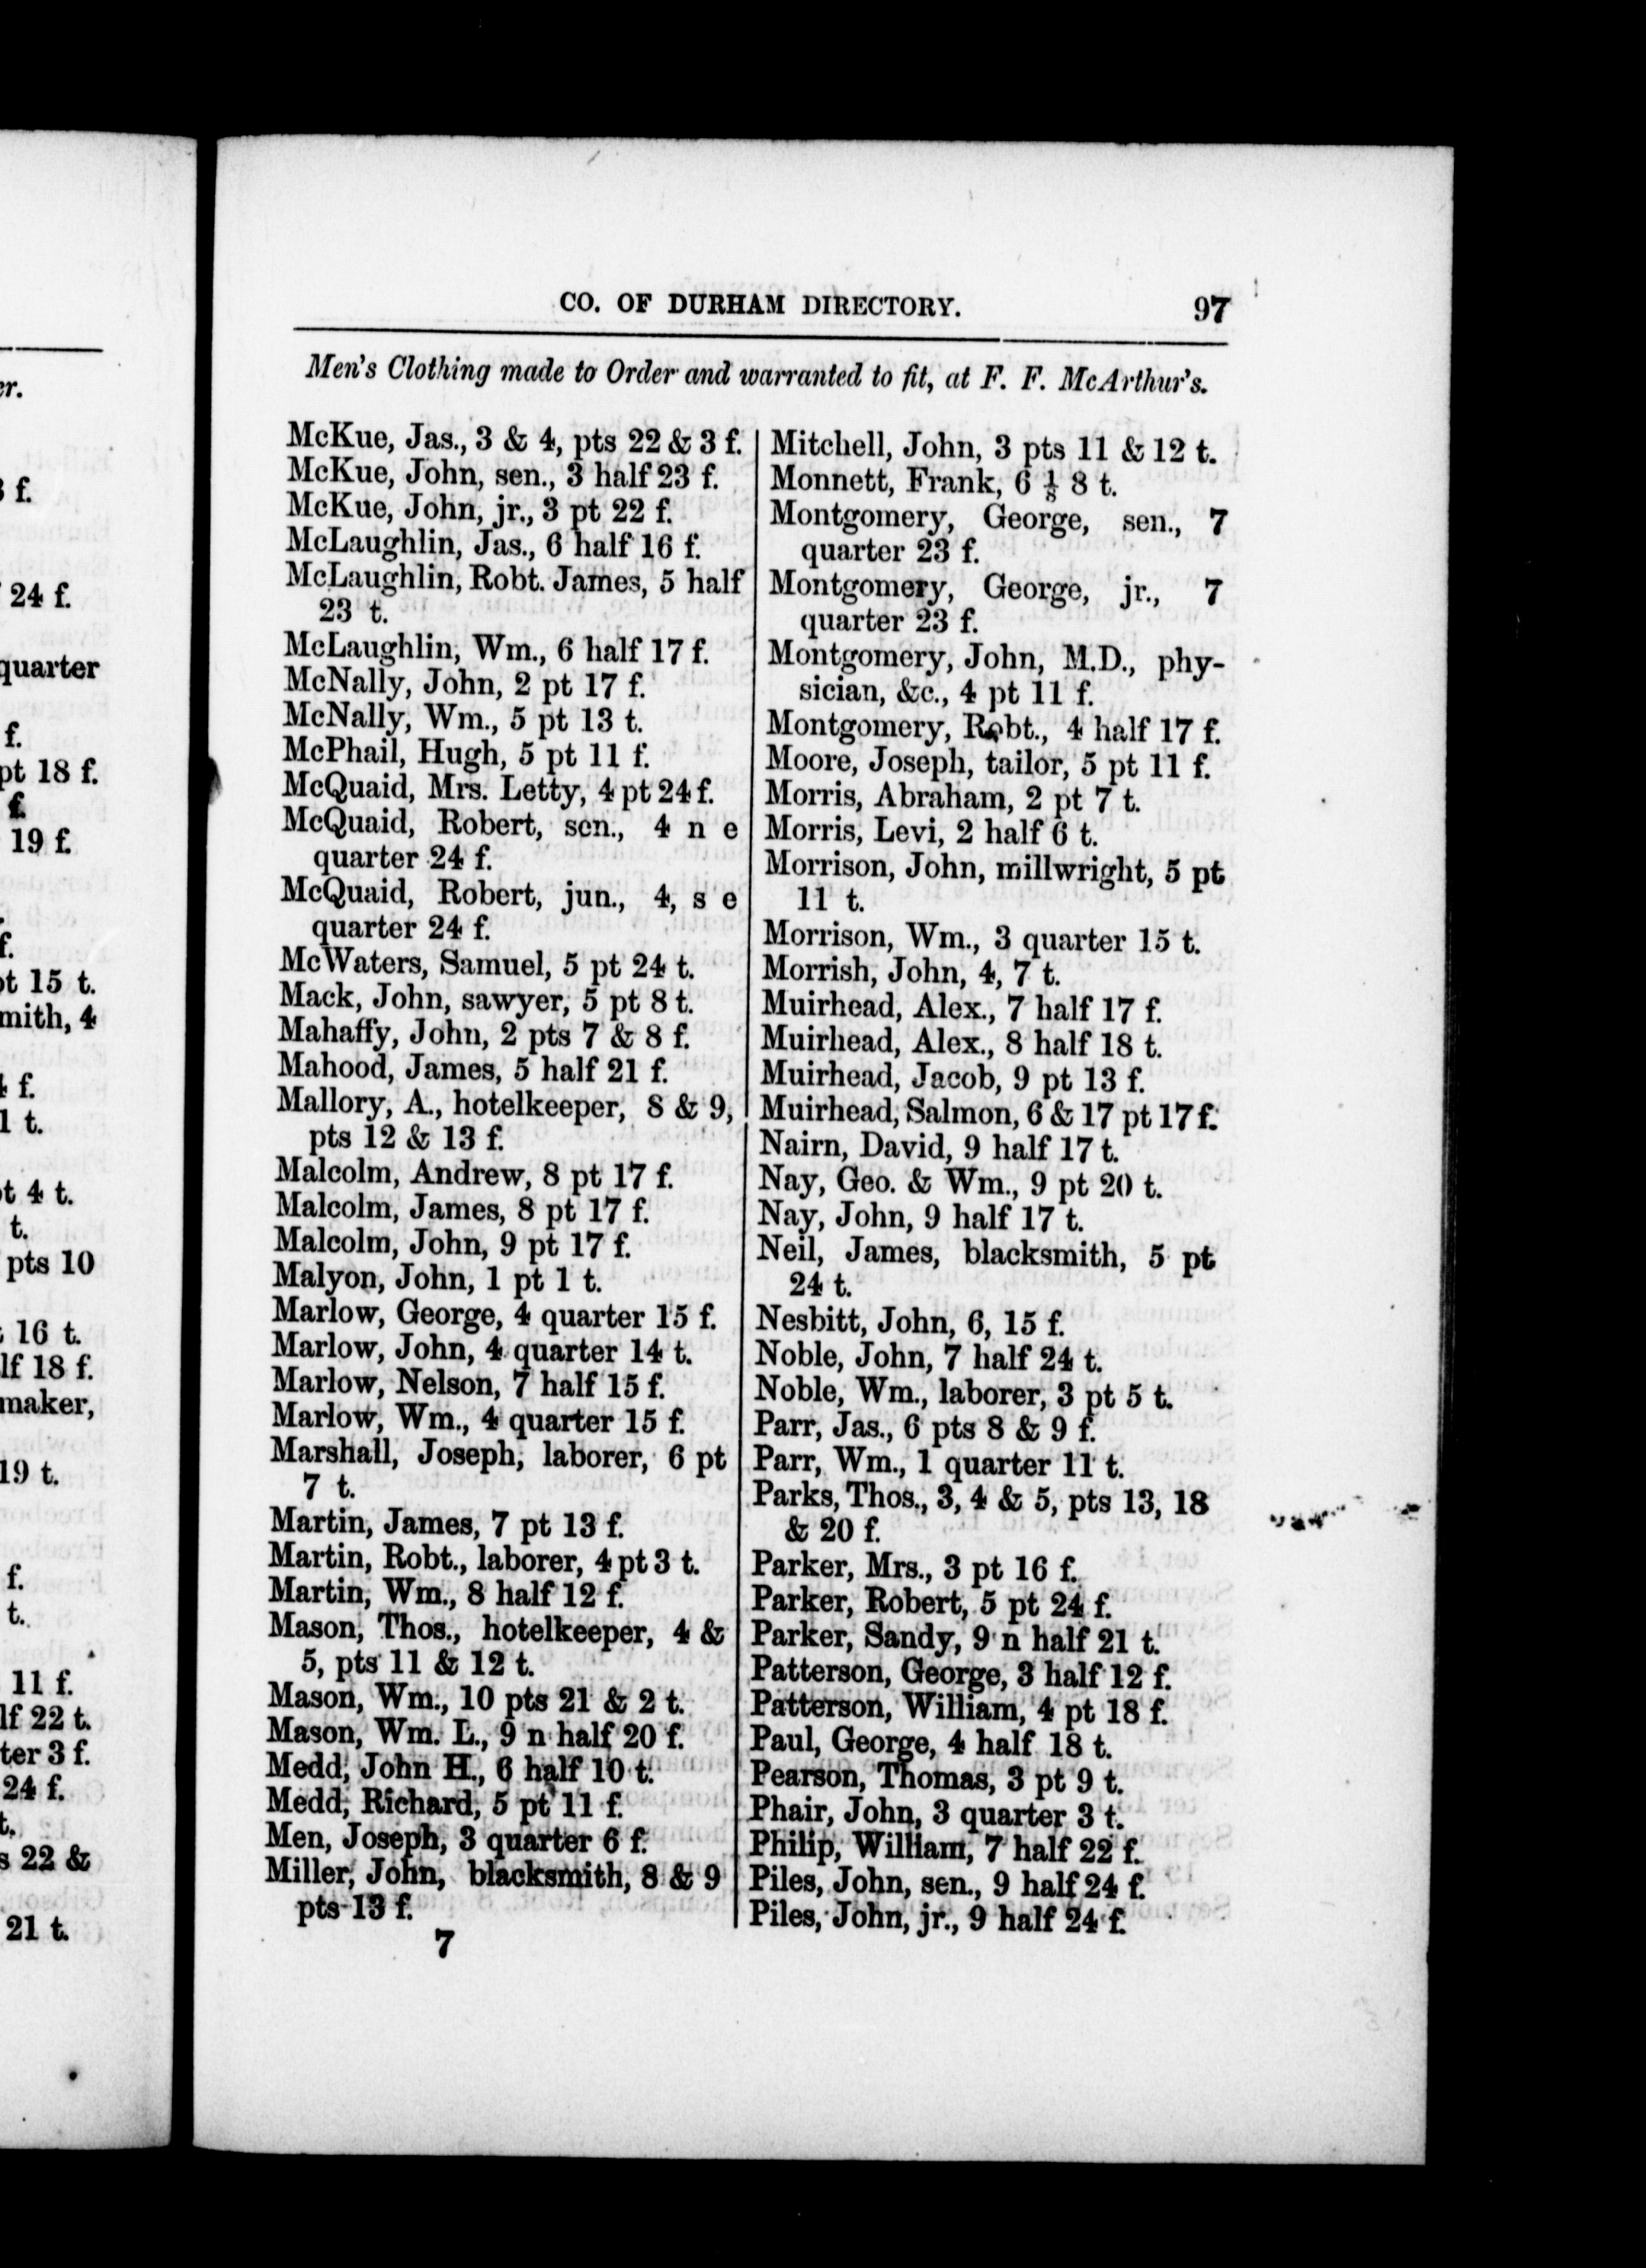 er.
f.
24 f.
quarter
f.
pt 18 f.
f.
19 f.
f.
pt 15 t.
mith, 4
f.
1 t.
t 4 t.
t.
pts 10
16 t.
lf 18 f.
maker,
19 t.
f.
t.
11 f.
lf 22 t.
ter 3 f.
24 f.
t.
s 22 &
21 t.
CO. OF DURHAM DIRECTORY. 97
Men's Clothing made to Order and warranted to fit, at F. F. McArthur's.
McKue, Jas., 3 & 4, pts 22 & 3 f.
McKue, John, sen., 3 half 23 f.
McKue, John, jr., 3 pt 22 f.
McLaughlin, Jas., 6 half 16 f.
McLaughlin, Robt. James, 5 half
23 t.
McLaughlin, Wm., 6 half 17 f.
McNally, John, 2 pt 17 f.
McNally, Wm., 5 pt 13 t.
McPhail, Hugh, 5 pt 11 f.
McQuaid, Mrs. Letty, 4 pt 24 f.
McQuaid, Robert, sen., 4 n e
quarter 24 f.
McQuaid, Robert, jun., 4, s e
quarter 24 f.
McWaters, Samuel, 5 pt 24 t.
Mack, John, sawyer, 5 pt 8 t.
Mahaffy, John, 2 pts 7 & 8 f.
Mahood, James, 5 half 21 f.
Mallory, A., hotelkeeper, 8 & 9,
pts 12 & 13 f.
Malcolm, Andrew, 8 pt 17 f.
Malcolm, James, 8 pt 17 f.
Malcolm, John, 9 pt 17 f.
Malyon, John, 1 pt 1 t.
Marlow, George, 4 quarter 15 f.
Marlow, John, 4 quarter 14 t.
Marlow, Nelson, 7 half 15 f.
Marlow, Wm., 4 quarter 15 f.
Marshall, Joseph, laborer, 6 pt
7 t.
Martin, James, 7 pt 13 f.
Martin, Robt., laborer, 4 pt 3 t.
Martin, Wm., 8 half 12 f.
Mason, Thos., hotelkeeper, 4 &
5, pts 11 & 12 t.
Mason, Wm., 10 pts 21 & 2 t.
Mason, Wm. L., 9 n half 20 f.
Medd, John H., 6 half 10 t.
Medd, Richard, 5 pt 11 f.
Men, Joseph, 3 quarter 6 f.
Miller, John, blacksmith, 8 & 9
pts 13 f.
7
Mitchell, John, 3 pts 11 & 12 t.
Monnett, Frank, 6 ⅛ 8 t.
Montgomery, George, sen., 7
quarter 23 f.
Montgomery, George, jr., 7
quarter 23 f.
Montgomery, John, M.D., phy-
sician, &c., 4 pt 11 f.
Montgomery, Robt., 4 half 17 f.
Moore, Joseph, tailor, 5 pt 11 f.
Morris, Abraham, 2 pt 7 t.
Morris, Levi, 2 half 6 t.
Morrison, John, millwright, 5 pt
11 t.
Morrison, Wm., 3 quarter 15 t.
Morrish, John, 4, 7 t.
Muirhead, Alex., 7 half 17 f.
Muirhead, Alex., 8 half 18 t.
Muirhead, Jacob, 9 pt 13 f.
Muirhead, Salmon, 6 & 17 pt 17 f.
Nairn, David, 9 half 17 t.
Nay, Geo. & Wm., 9 pt 20 t.
Nay, John, 9 half 17 t.
Neil, James, blacksmith, 5 pt
24 t.
Nesbitt, John, 6, 15 f.
Noble, John, 7 half 24 t.
Noble, Wm., laborer, 3 pt 5 t.
Parr, Jas., 6 pts 8 & 9 f.
Parr, Wm., 1 quarter 11 t.
Parks, Thos., 3, 4 & 5, pts 13, 18
& 20 f.
Parker, Mrs., 3 pt 16 f.
Parker, Robert, 5 pt 24 f.
Parker, Sandy, 9 n half 21 t.
Patterson, George, 3 half 12 f.
Patterson, William, 4 pt 18 f.
Paul, George, 4 half 18 t.
Pearson, Thomas, 3 pt 9 t.
Phair, John, 3 quarter 3 t.
Philip, William, 7 half 22 f.
Piles, John, sen., 9 half 24 f.
Piles, John, jr., 9 half 24 f.